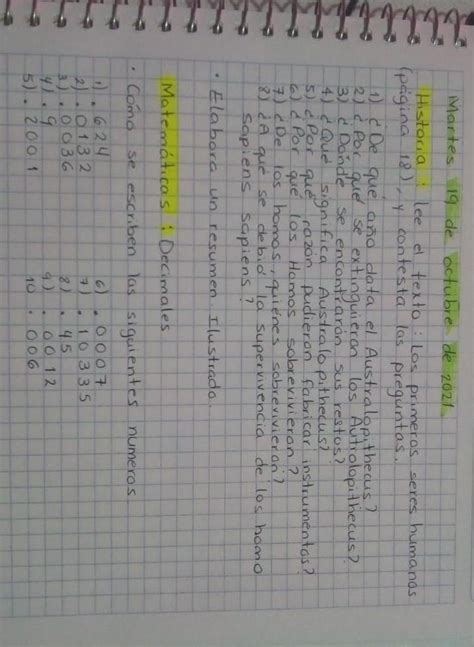 Martes 19 de octubre de 2021
Historia : Lee el texto: Los primeros seres humanos
(página 18), y contesta las preguntas.
1) ¿De qué año data el Australopithecus?
2) ¿Por qué se extinguieron los Autralopithecus?
3) ¿Dónde se encontrarón sus restos?
4) ¿Qué significa Australopithecus?
5) ¿Por qué razón pudieron fabricar instrumentos?
6) ¿Por qué los Homos sobrevivieron?
7) ¿De los homos, quiénes sobrevivieron?
8) ¿A qué se debió la supervivencia de los homo
sapiens sapiens?
· Elabora un resumen ilustrado.
Matemáticas : Decimales
· Cómo se escriben las siguientes numeros
1) .624
2) .0132
3) .0036
4) .9
5) .2001
6) .0007
7) .10335
8) .45
9) .0012
10 .006